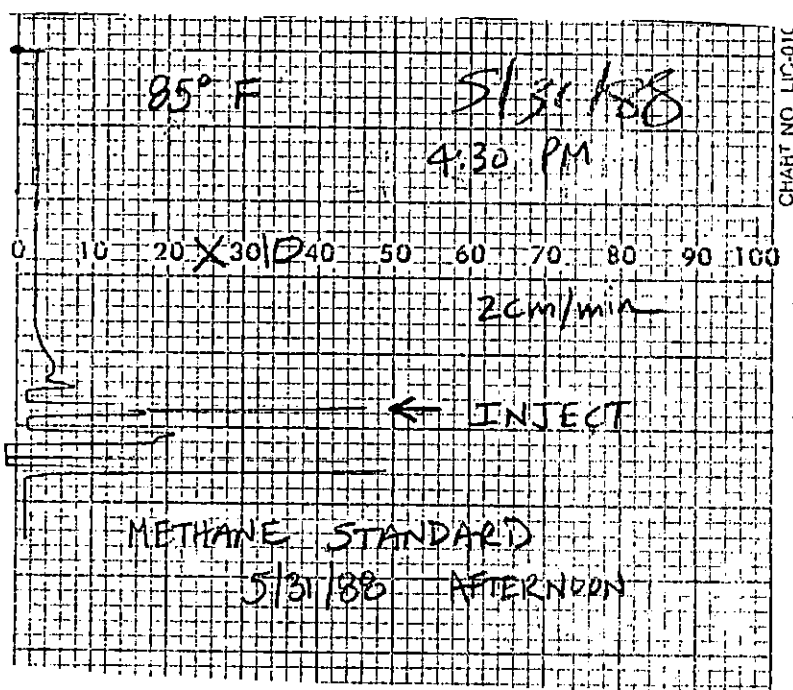 85° F
5/31/88
4:30 PM
CHART NO. LIC-010
0 10 20 X 30 10 40 50 60 70 80 90 100
2cm/min
← INJECT
METHANE STANDARD
5/31/88 AFTERNOON